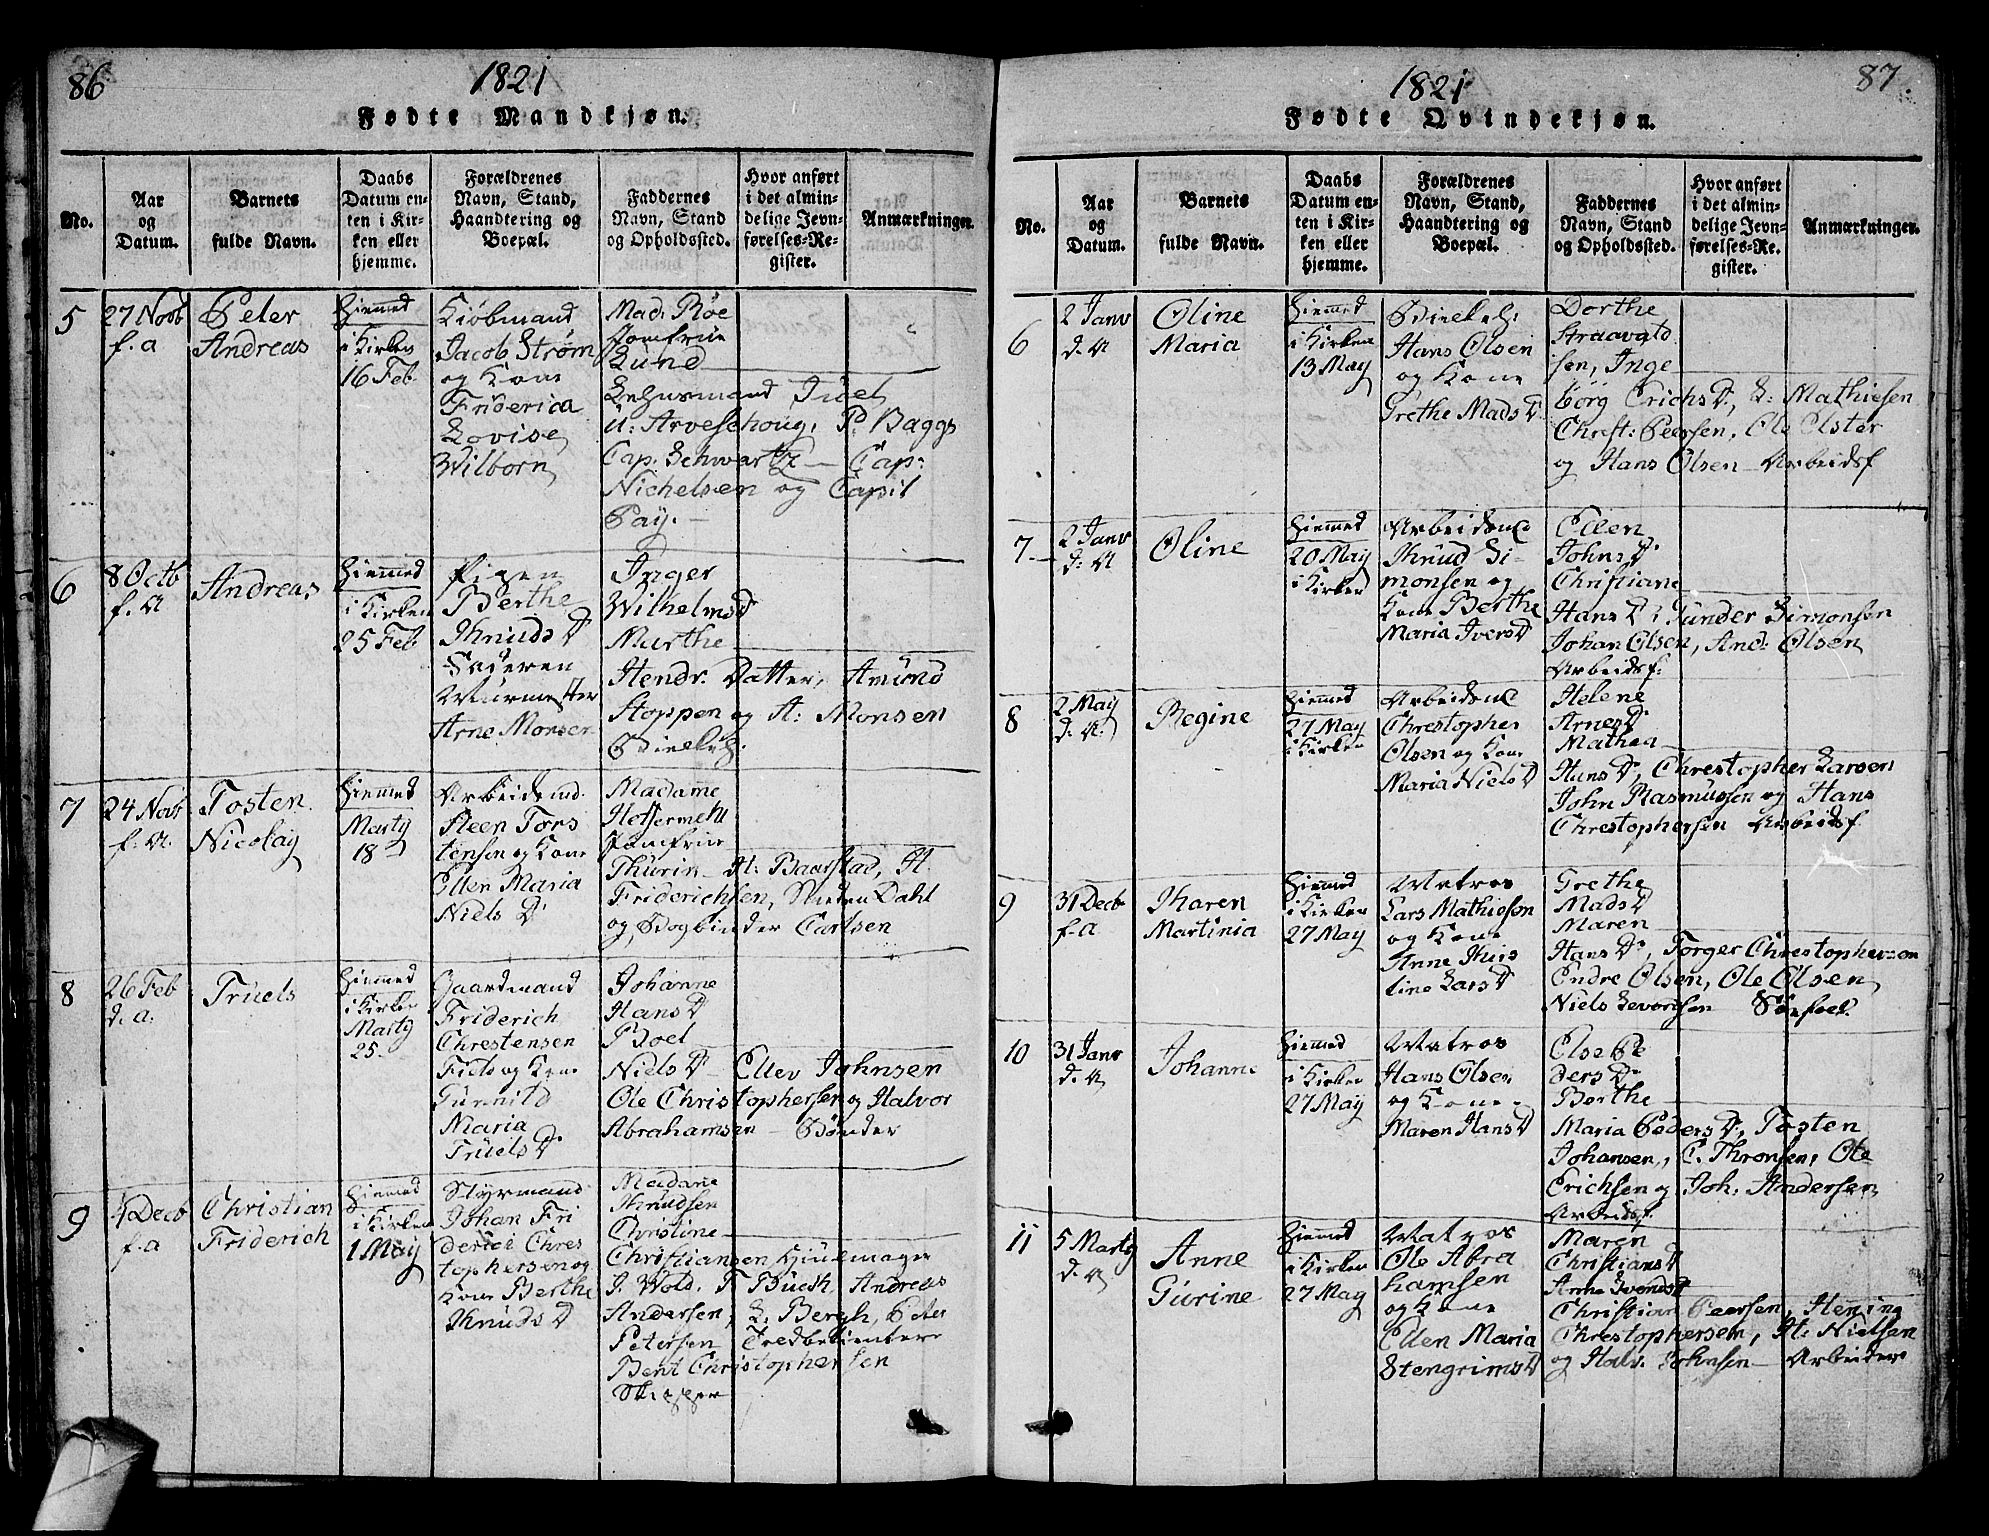 86
1821
Fødte Mandkjøn.
No.
Aar
og
Datum.
Barnets
fulde Navn.
Daabs
Datum en-
ten i Kir-
ken eller
hjemme.
Forældrenes
Navn, Stand,
Haandtering og
Boepæl.
Faddernes
Navn, Stand
og Opholdssted.
Hvor anført
i det almin-
delige Jevn-
førelses-Re-
gister.
Anmærkninger.
5
27 Novb
f. a
Peter
Andreas
Hiemmed
i Kirken
16 Feb
Kiøbmand
Jacob Strøm
og Kone
Friderica
Lovise
Wilborn
Mad. Røe
Jomfrue
Lund
Lehnsmand Juel
u: Arveschoug, P. Baggs
Cap. Schwartz – Cap:
Nichelsen og Capit
Pay. –
6
8 Octb
f. A
Andreas
Hiemmed
i Kirken
25 Feb
Pigen
Berthe
Knuds D
Svieren
Murmester
Arne Monsen
Inger
Wilhelms D
Marthe
Hendr. Datter, Amund
Stoppen og A: Monsen
7
24 Novb
f. A.
Tosten
Nicolay
Hiemmed
Marty
18
Arbeidsmd.
Steen Tors
tensen og Kone
Ellen Maria
Niels D
Madame
Jomfrue
Thurin – H: Baarstad, H.
Friderichsen, Dahl
og Bogbinder Carlsen
8
26 Feb
d. a.
Truels
Hiemmed
i Kirken
Marty
25.
Gaardmand
Friderich
Chrestensen
og Kone
Gunnild
Maria
Truels D
Johanne
Hans D
Boel
Niels D – Ellev Johnsen
Ole Christophersen og Halvor
Abrahamsen – Bønder
9
4 Decb
f. a
Christian
Friderich
Hiemmed
i Kirken
1 May
Styrmand
Johan Fri
derici Chres
tophersen og
Kone Berthe
Knuds D
Madame
Knudsen
Christine
Christiansen Hiulmager
J. Wold, F Buch, Andreas
Andersen, L. Bergh, Peter
Petersen
Bent Christophersen
Skipper
87.
1821
Fødte Qvindekjøn.
No.
Aar
og
Datum.
Barnets
fulde Navn.
Daabs
Datum en-
ten i Kir-
ken eller
hjemme.
Forældrenes
Navn, Stand,
Haandtering og
Boepæl.
Faddernes
Navn, Stand
og Opholdssted.
Hvor anført
i det almin-
delige Jevn-
førelses-Re-
gister.
Anmærkninger.
6
2 Janv
d. A
Oline
Maria
Hiemmed
i Kirken
13 May
Hans Olsen
og Kone
Grethe Mads D
Dorthe
Straavald
sen, Inge
børg Erichs D, L: Mathiesen
Christ: Peersen, Ole Olster
og Hans Olsen – Arbeidsf
7
2 Janv
d. A
Oline
Hiemmed
20 May
i Kirken
Arbeidsmd
Knud Si-
monsen og
Kone Berthe
Maria Ivers D
Ellen
Johns D
Christiane
Hans D, Gunder Simonsen
Johan Olsen, And: Olsen
Arbeidsf:
8
2 May
d. A.
Regine
Hiemmed
27 May
i Kirken
Arbeidsmd
Chrestopher
Olsen og Kone
Maria Niels D
Helene
Arnes D
Mathea
Hans D, Chrestopher Larsen
John Rasmussen og Hans
Chrestophersen Arbeidsf
9
31 Decb
f. a
Karen
Martinia
Hiemmed
i Kirken
27 May
Matros
Lars Mathiesen
og Kone
Anne Kirs
tine Lars D
Grethe
Mads D
Maren
Hans D, Torger Chrestophersen
Endre Olsen, Ole Olsen
Niels Sevordsen Søefoel.
10
31 Janv
d. A
Johanne
Hiemmed
i Kirken
27 May
Matros
Hans Olsen
og Kone
Maren Hans D
Else Pe
ders D
Berthe
Maria Peders D, Tosten
Johansen, C. Thronsen, Ole
Erichsen og Joh. Andersen
Arbeidsf.
11
5 Marty
d. A
Anne
Gurine
Hiemmed
i Kirken
27 May
Matros
Ole Abra
hamsen
og Kone
Ellen Maria
Stengrims D
Maren
Christians D
Anne Ivends D
Christian Peersen, Hening
Chrestophersen, H: Nielsen
og Halv. Johnsen – Arbeider